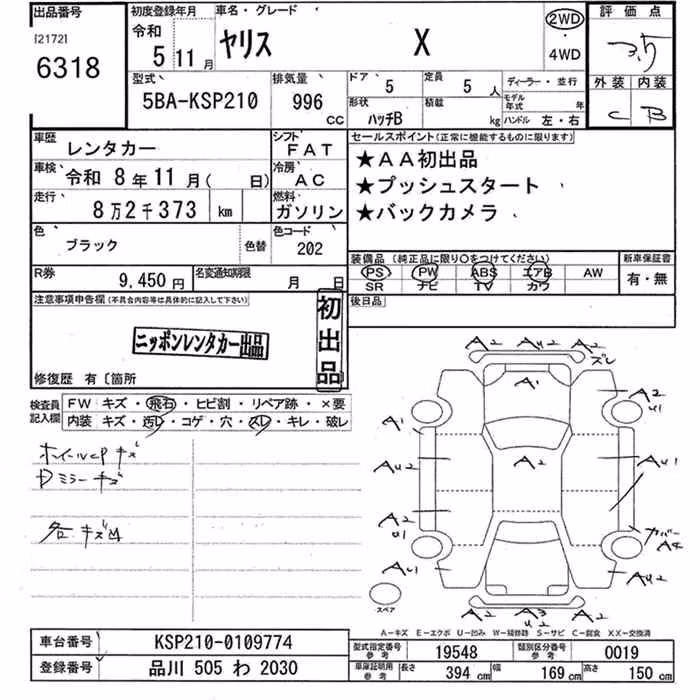 出品番号
[2172]
6318
初度登録年月
令和
5年11月
車名・グレード
ヤリス X
2WD
・
4WD
評価点
3.5
外装 内装
C B
型式
5BA-KSP210
排気量
996 cc
ドア
5
定員
5 人
形状
ハッチB
積載
kg
ディーラー・並行
モデル年式 年
ハンドル 左・右
車歴
レンタカー
シフト
FAT
車検
令和 8年11月( 日)
冷房
AC
走行
8万2千373 km
燃料
ガソリン
色
ブラック
色替
色コード
202
R券
9,450円
名変通知期限
月 日
セールスポイント(正常に機能するものに限ります)
★AA初出品
★プッシュスタート
★バックカメラ
装備品(純正品に限り〇をつけてください)
PS PW ABS エアB AW
SR ナビ TV カワ
新車保証書
有・無
後日品
注意事項申告欄(不具合内容等は具体的に記入して下さい)
ニッポンレンタカー出品
初出品
修復歴 有〔箇所
検査員記入欄
FW キズ・飛石・ヒビ割・リペア跡・×要
内装 キズ・汚レ・コゲ・穴・スレ・キレ・破レ
ホイールcPキズ
Dミラーキズ
各キズ凹
A2 AU2 A2
ズレ
A1
A2
U1
A1
AU2
A2
AU1
A2
U1
カバー
A4
AU1
AU2
A2 A3 A2
U2
スペア
A-キズ E-エクボ U-凹み W-補修跡 S-サビ C-腐食 XX-交換済
車台番号
KSP210-0109774
登録番号
品川 505 わ 2030
型式指定番号
参考
19548
類別区分番号
参考
0019
車庫証明用
参考
長さ 394 cm
幅 169 cm
高さ 150 cm